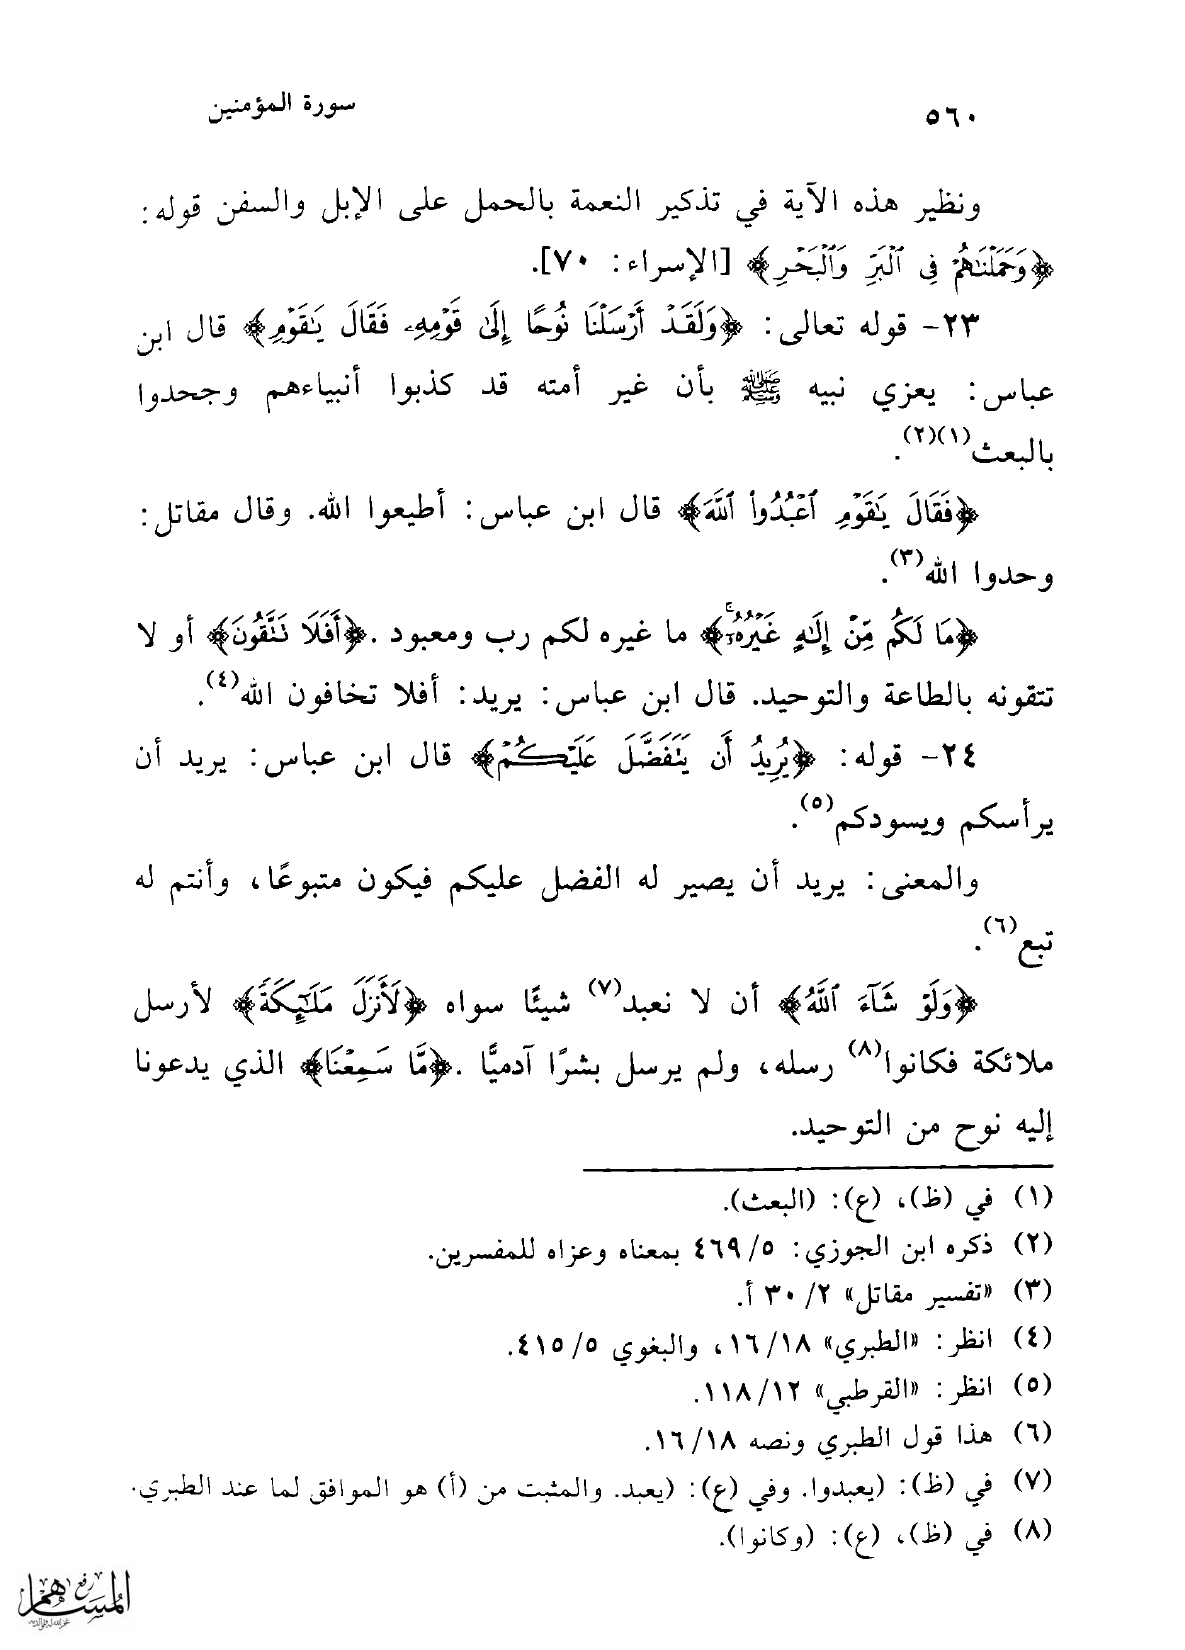 ٥٦٠ سورة المؤمنين
ونظير هذه الآية في تذكير النعمة بالحمل على الإبل والسفن قوله:
﴿وَحَمَلْنَٰهُمْ فِى ٱلْبَرِّ وَٱلْبَحْرِ﴾ [الإسراء: ٧٠].
٢٣- قوله تعالى: ﴿وَلَقَدْ أَرْسَلْنَا نُوحًا إِلَىٰ قَوْمِهِۦ فَقَالَ يَٰقَوْمِ﴾ قال ابن
عباس: يعزي نبيه ﷺ بأن غير أمته قد كذبوا أنبياءهم وجحدوا
بالبعث(١)(٢).
﴿فَقَالَ يَٰقَوْمِ ٱعْبُدُوا۟ ٱللَّهَ﴾ قال ابن عباس: أطيعوا الله. وقال مقاتل:
وحدوا الله(٣).
﴿مَا لَكُم مِّنْ إِلَٰهٍ غَيْرُهُۥٓ ۚ﴾ ما غيره لكم رب ومعبود .﴿أَفَلَا تَتَّقُونَ﴾ أو لا
تتقونه بالطاعة والتوحيد. قال ابن عباس: يريد: أفلا تخافون الله(٤).
٢٤- قوله: ﴿يُرِيدُ أَن يَتَفَضَّلَ عَلَيْكُمْ﴾ قال ابن عباس: يريد أن
يرأسكم ويسودكم(٥).
والمعنى: يريد أن يصير له الفضل عليكم فيكون متبوعًا، وأنتم له
تبع(٦).
﴿وَلَوْ شَآءَ ٱللَّهُ﴾ أن لا نعبد(٧) شيئًا سواه ﴿لَأَنزَلَ مَلَٰٓئِكَةً﴾ لأرسل
ملائكة فكانوا(٨) رسله، ولم يرسل بشرًا آدميًّا .﴿مَّا سَمِعْنَا﴾ الذي يدعونا
إليه نوح من التوحيد.
(١) في (ظ)، (ع): (البعث).
(٢) ذكره ابن الجوزي: ٥/ ٤٦٩ بمعناه وعزاه للمفسرين.
(٣) «تفسير مقاتل» ٢/ ٣٠ أ.
(٤) انظر: «الطبري» ١٨/ ١٦، والبغوي ٥/ ٤١٥.
(٥) انظر: «القرطبي» ١٢/ ١١٨.
(٦) هذا قول الطبري ونصه ١٨/ ١٦.
(٧) في (ظ): (يعبدوا. وفي (ع): (يعبد. والمثبت من (أ) هو الموافق لما عند الطبري.
(٨) في (ظ)، (ع): (وكانوا).